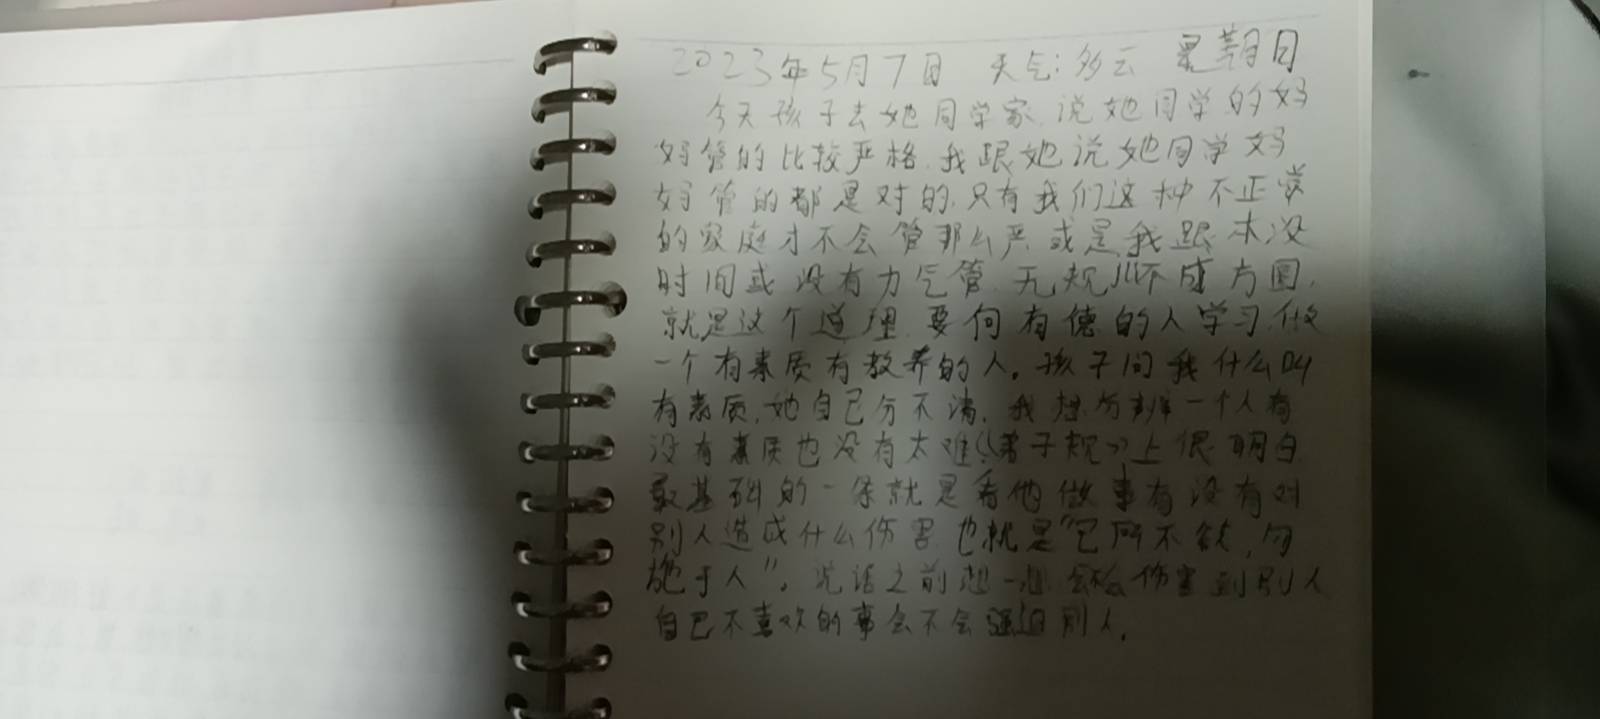 2023年5月7日 天气:多云 星期日
今天孩子去她同学家,说她同学的妈
妈管的比较严格,我跟她说她同学妈
妈管的都是对的,只有我们这种不正常
的家庭才不会管那么严,或是我跟本没
时间或没有力气管,无规川不成方圆,
就是这个道理,要向有德的人学习,做
一个有素质有教养的人。孩子问我什么叫
有素质,她自己分不清,我想分辨一个人有
没有素质也没有太难《弟子规》上很明白
最基础的一条就是看他做事有没有对
别人造成什么伤害,也就是“己所不欲,勿
施于人”。说话之前想一想会不会伤害到别人
自己不喜欢的事会不会强迫别人。